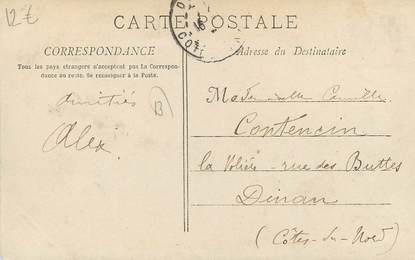 12€
CARTE POSTALE
CORRESPONDANCE
Tous les pays étrangers n'acceptent pas la Correspon-
dance au recto. Se renseigner à la Poste.
Adresse du Destinataire
Amitiés
Alex.
B
Mademoiselle Camille
Contencin
la Volière - rue des Buttes
Dinan
(Côtes-du-Nord)